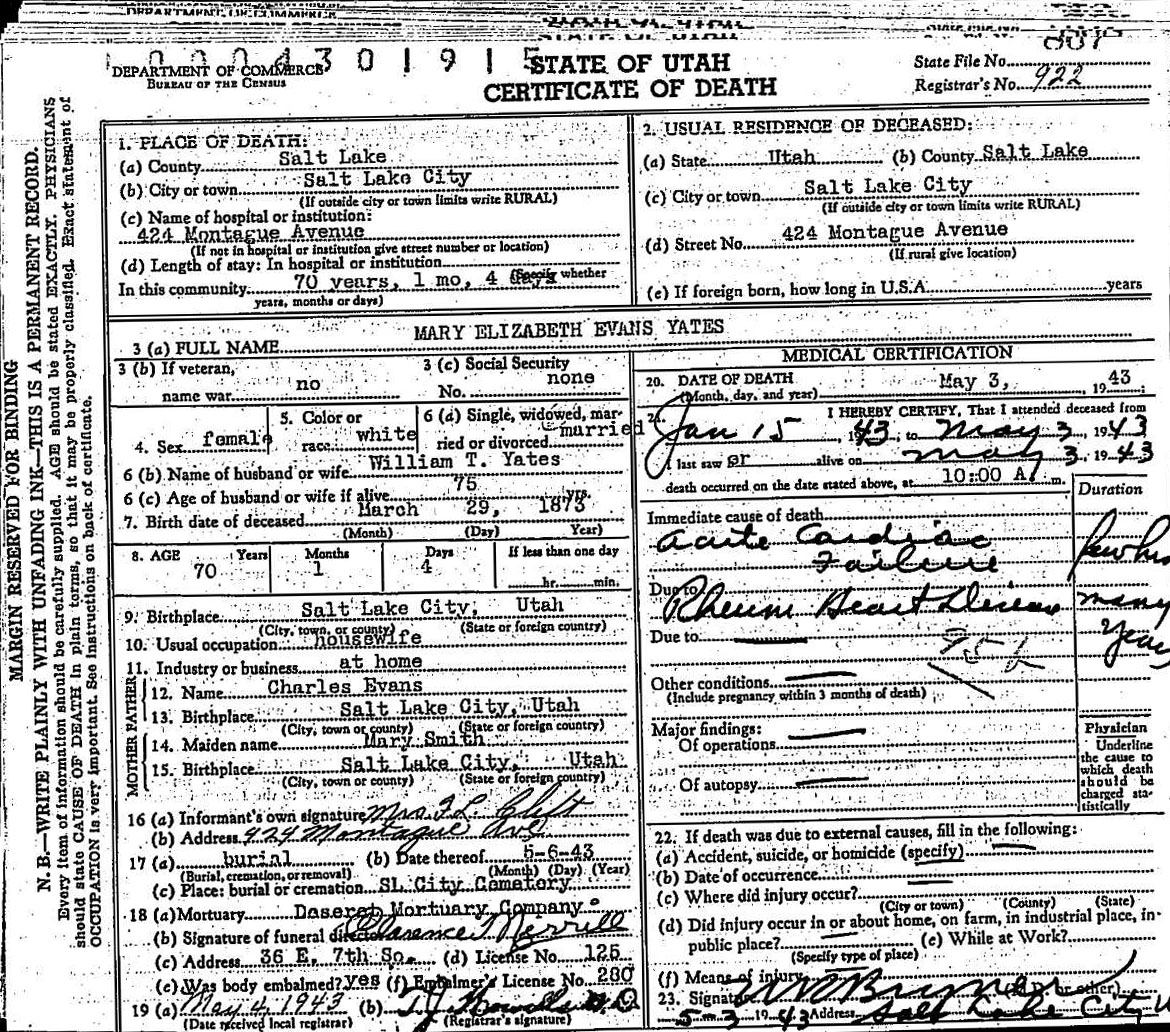 DEPARTMENT OF COMMERCE
0 0 0 4 3 0 1 9 1 5
DEPARTMENT OF COMMERCE
BUREAU OF THE CENSUS
STATE OF UTAH
CERTIFICATE OF DEATH
State File No.
Registrar's No. 922
MARGIN RESERVED FOR BINDING
N. B.—WRITE PLAINLY WITH UNFADING INK—THIS IS A PERMANENT RECORD.
Every item of information should be carefully supplied. AGE should be stated EXACTLY. PHYSICIANS
should state CAUSE OF DEATH in plain terms, so that it may be properly classified. Exact statement of
OCCUPATION is very important. See instructions on back of certificate.
1. PLACE OF DEATH:
(a) County Salt Lake
(b) City or town Salt Lake City
(If outside city or town limits write RURAL)
(c) Name of hospital or institution:
424 Montague Avenue
(If not in hospital or institution give street number or location)
(d) Length of stay: In hospital or institution
(Specify whether
In this community 70 years, 1 mo, 4 days
years, months or days)
2. USUAL RESIDENCE OF DECEASED:
(a) State Utah (b) County Salt Lake
(c) City or town Salt Lake City
(If outside city or town limits write RURAL)
(d) Street No. 424 Montague Avenue
(If rural give location)
(e) If foreign born, how long in U.S.A. years
3 (a) FULL NAME MARY ELIZABETH EVANS YATES
3 (b) If veteran,
name war no
3 (c) Social Security
No. none
4. Sex female
5. Color or
race white
6 (a) Single, widowed, mar-
ried or divorced married
6 (b) Name of husband or wife William T. Yates
6 (c) Age of husband or wife if alive 75 yrs.
7. Birth date of deceased March 29, 1873
(Month) (Day) Year)
8. AGE Years Months Days If less than one day
70 1 4 hr. min.
9. Birthplace Salt Lake City, Utah
(City, town, or county) (State or foreign country)
10. Usual occupation housewife
11. Industry or business at home
FATHER
12. Name Charles Evans
13. Birthplace Salt Lake City, Utah
(City, town or county) (State or foreign country)
MOTHER
14. Maiden name Mary Smith
15. Birthplace Salt Lake City, Utah
(City, town or county) (State or foreign country)
16 (a) Informant's own signature Mrs. F.L. Clift
(b) Address 424 Montague Ave
17 (a) burial (b) Date thereof 5-6-43
(Burial, cremation, or removal) (Month) (Day) (Year)
(c) Place: burial or cremation SL City Cemetery
18 (a) Mortuary Deseret Mortuary Company
(b) Signature of funeral director Clarence Merrill
(c) Address 36 E. 7th So. (d) License No. 125
(e) Was body embalmed? yes (f) Embalmer's License No. 280
19 (a) May 4, 1943 (b)
(Date received local registrar) (Registrar's signature)
MEDICAL CERTIFICATION
20. DATE OF DEATH May 3, 1943
(Month, day, and year)
I HEREBY CERTIFY, That I attended deceased from
Jan 15, 1943, to May 3, 1943
I last saw er alive on May 3, 1943
death occurred on the date stated above, at 10:00 A. m.
Duration
Immediate cause of death
Acute Cardiac
Failure few hrs
Due to Rheum Heart Disease many
years
Due to
Other conditions
(Include pregnancy within 3 months of death)
Major findings:
Of operations
Of autopsy
Physician
Underline
the cause to
which death
should be
charged sta-
tistically
22. If death was due to external causes, fill in the following:
(a) Accident, suicide, or homicide (specify)
(b) Date of occurrence
(c) Where did injury occur?
(City or town) (County) (State)
(d) Did injury occur in or about home, on farm, in industrial place, in-
public place? (e) While at Work?
(Specify type of place)
(f) Means of injury
23. Signature
5-3 1943 Address Salt Lake City U